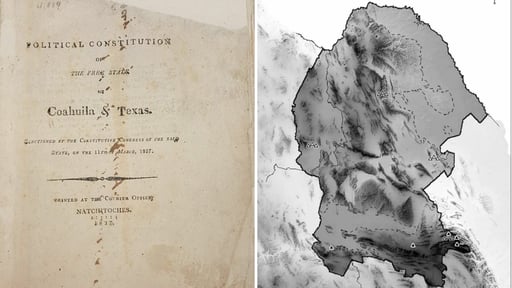 POLITICAL CONSTITUTION
OF
THE FREE STATE
OF
Coahuila & Texas.
SANCTIONED BY THE CONSTITUTIVE CONGRESS OF THE SAID
STATE, ON THE 11TH OF MARCH, 1827.
PRINTED AT THE COURIER OFFICE,
NATCHITOCHES.